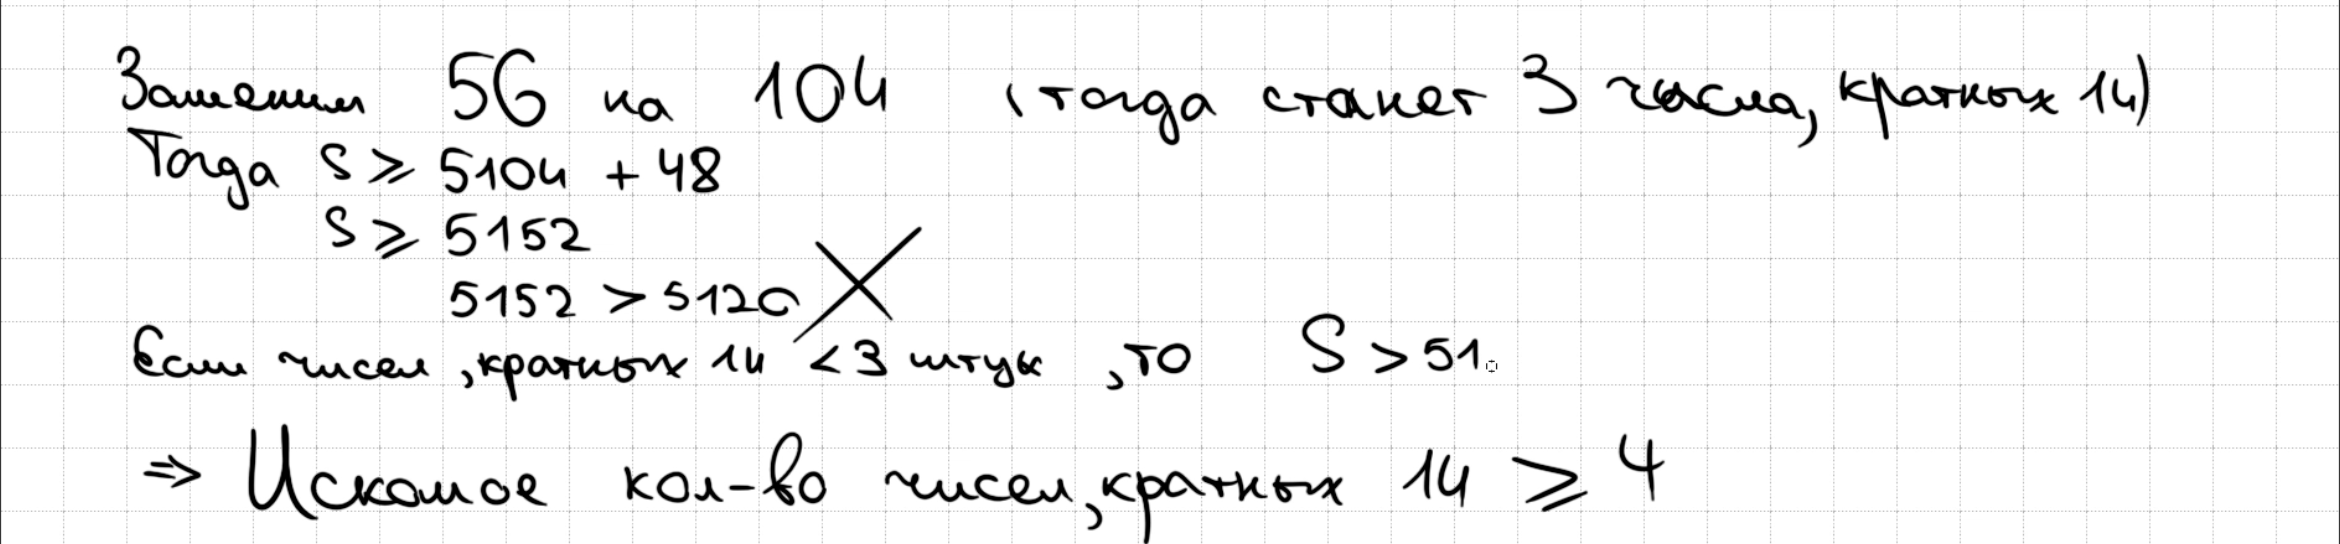 Заменим 56 на 104 (тогда станет 3 числа, кратных 14)
Тогда S ⩾ 5104 + 48
S ⩾ 5152
5152 > 5120
Если чисел, кратных 14 < 3 штук, то S > 51
⇒ Искомое кол-во чисел, кратных 14 ⩾ 4